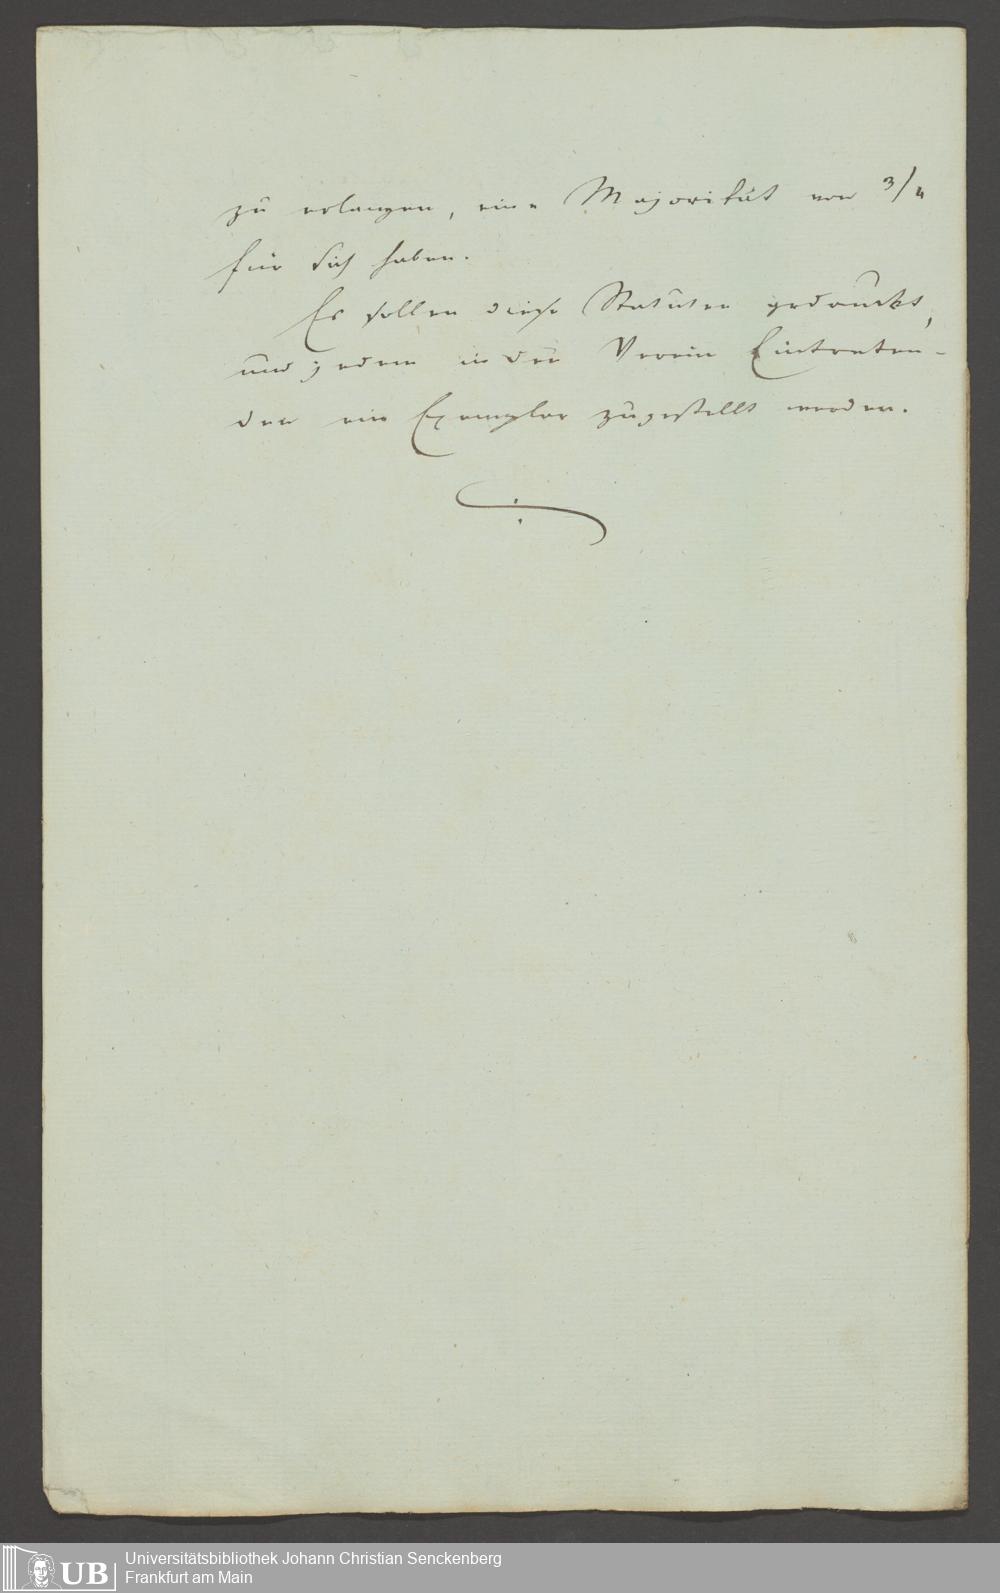 zu erlangen, eine Majorität von 3/4
für sich haben.
Es sollen diese Statuten gedruckt,
und jedem in den Verein Eintreten-
den ein Exemplar zugestellt werden.
UB
Universitätsbibliothek Johann Christian Senckenberg
Frankfurt am Main